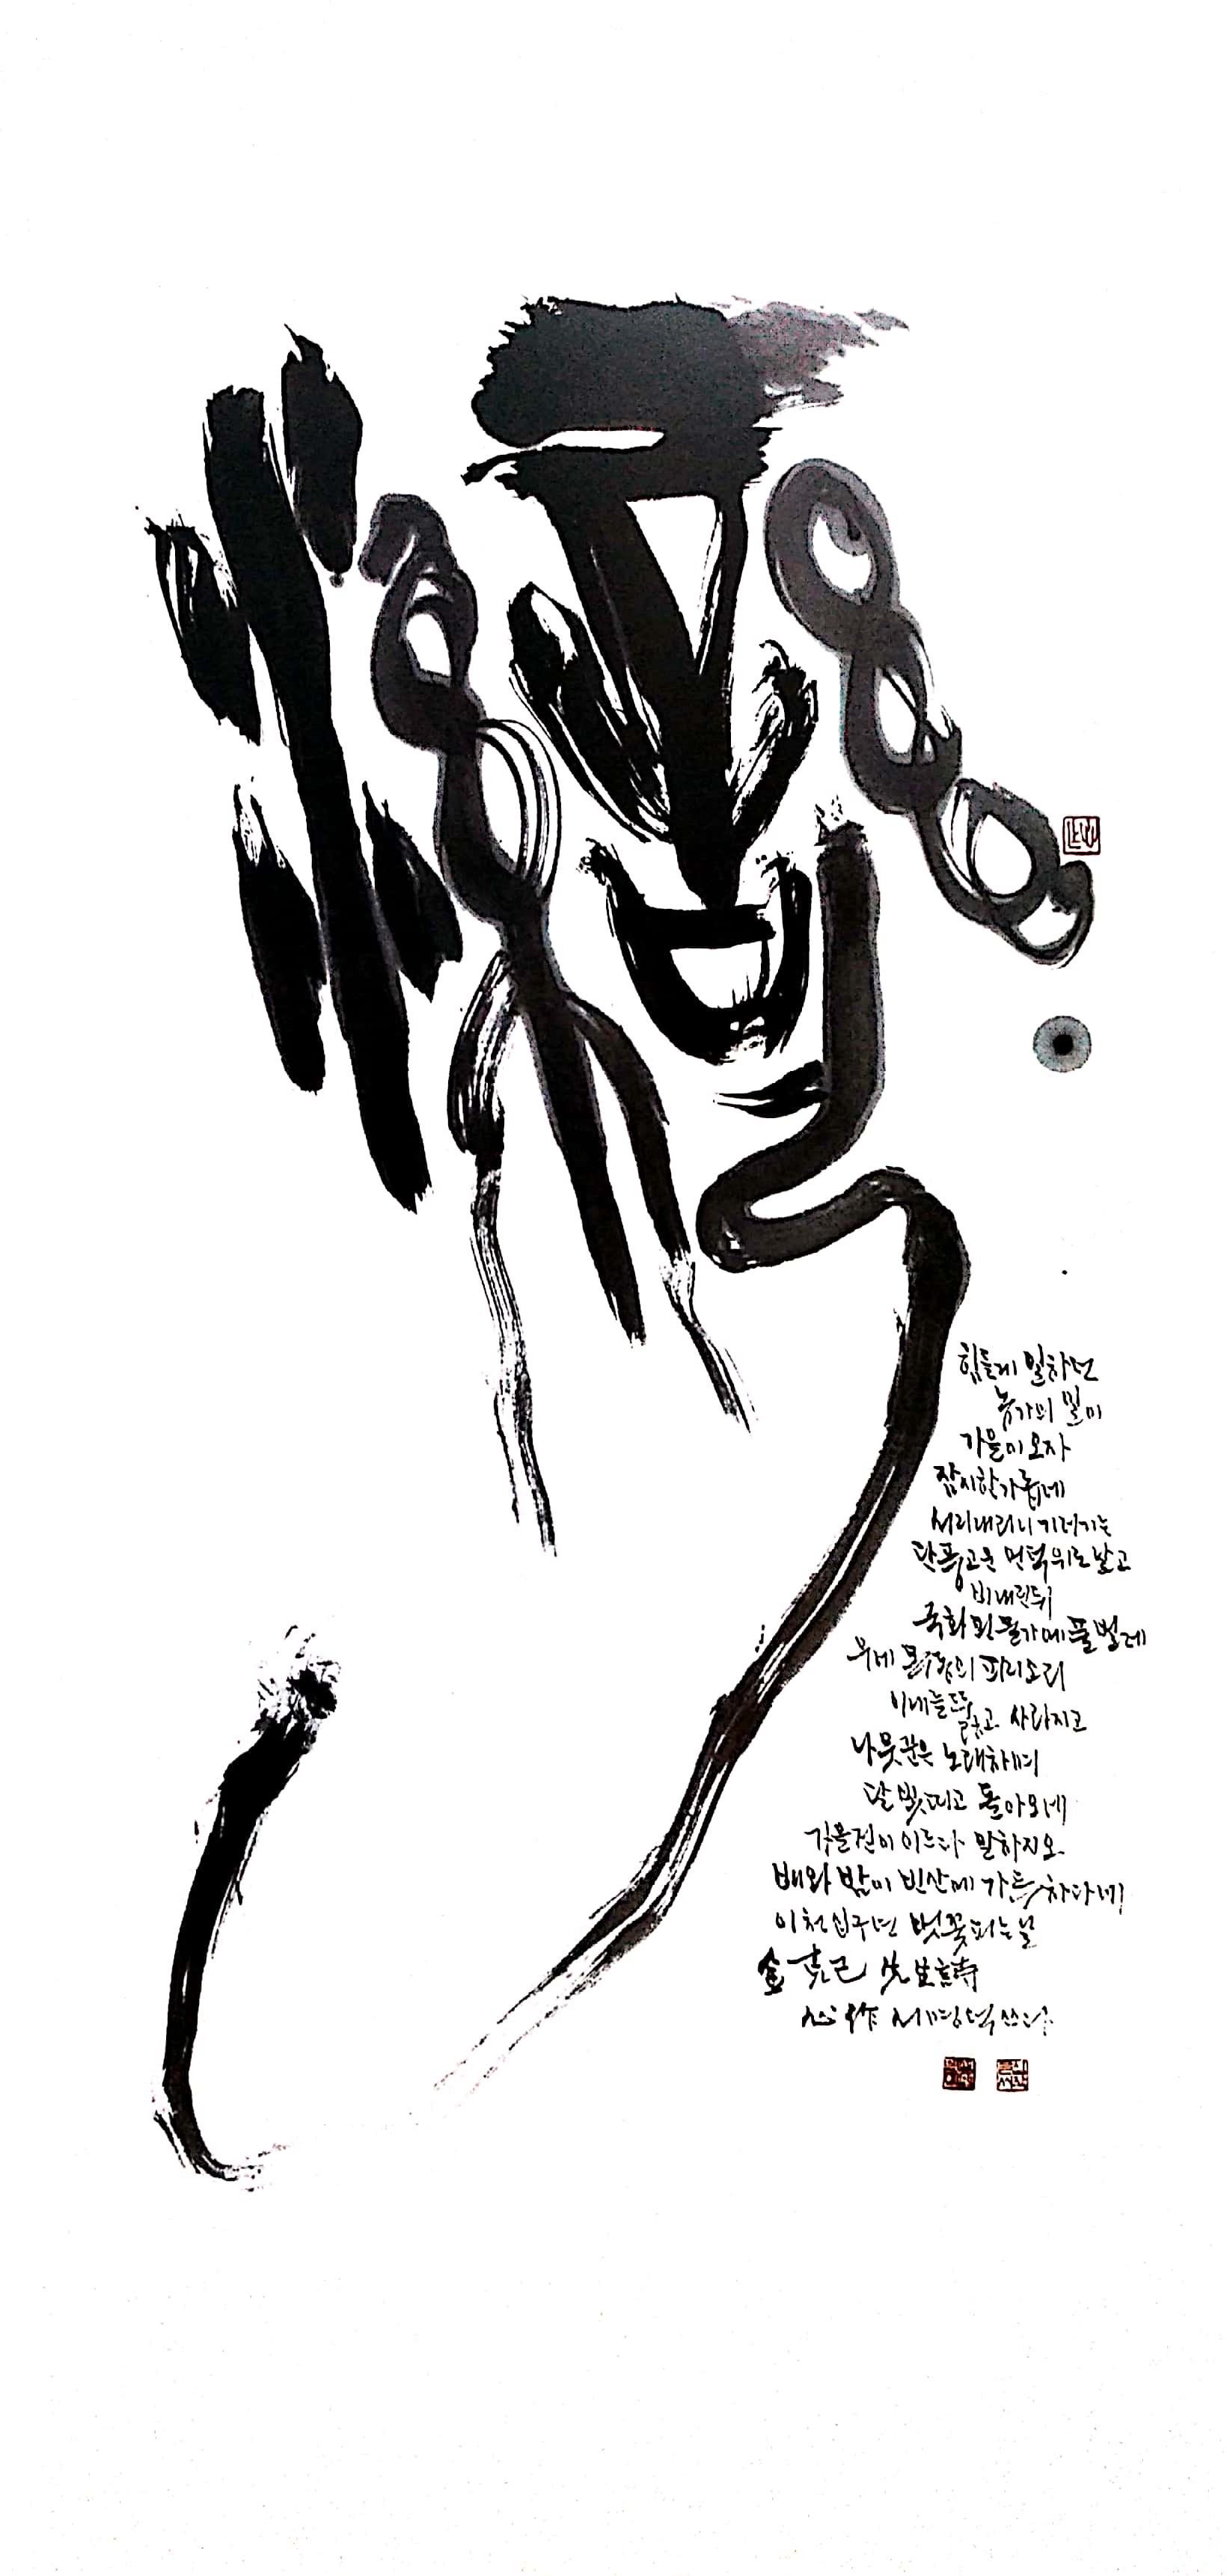 힘들게 일하던
농가의 일이
가을이 오자
잠시 한가롭네
서리내리니 기러기는
단풍고운 언덕위로 날고
비내린뒤
국화핀 물가에 풀벌레
우네 목동의 피리소리
안개를 뚫고 사라지고
나뭇꾼은 노래하며
달빛띠고 돌아오네
가을걷이 이르다 말하지오
배와 밤이 빈산에 가득차다네
이천십구년 벚꽃피는날
金克己 先生詩
心作 서명덕쓰다